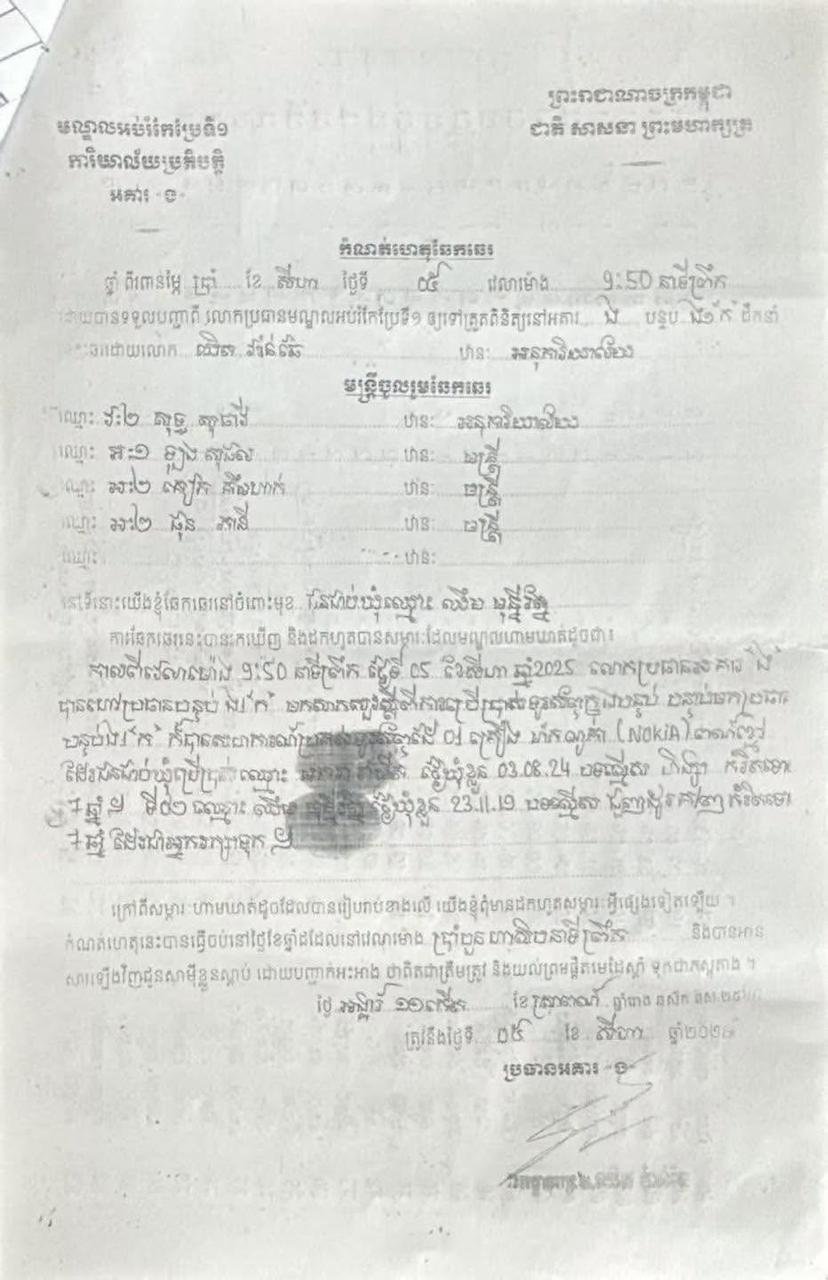 ព្រះរាជាណាចក្រកម្ពុជា
ជាតិ សាសនា ព្រះមហាក្សត្រ
មណ្ឌលអប់រំកែប្រែទី១
ការិយាល័យប្រតិបត្តិ
អគារ -ង-
កំណត់ហេតុឆែកឆេរ
ឆ្នាំ ពីរពាន់ម្ភៃ ប្រាំ ខែ សីហា ថ្ងៃទី ០៥ វេលាម៉ោង 9:50 នាទីព្រឹក
ដោយបានទទួលបញ្ជាពី លោកប្រធានមណ្ឌលអប់រំកែប្រែទី១ ឲ្យទៅត្រួតពិនិត្យនៅអគារ ង បន្ទប់ ង១"ក" ដឹកនាំ
ដោយលោក ឋានៈ អនុការិយាល័យ
មន្ត្រីចូលរួមឆែកឆេរ
ឈ្មោះ វរ:២ សុទ្ធ សុផាវី ឋានៈ អនុការិយាល័យ
ឈ្មោះ អ:១ ឡុង សុផល ឋានៈ មន្ត្រី
ឈ្មោះ អ:២ ឋានៈ មន្ត្រី
ឈ្មោះ អ:២ ផុន ភានី ឋានៈ មន្ត្រី
ឈ្មោះ ឋានៈ
នៅទីនោះយើងខ្ញុំឆែកឆេរនៅចំពោះមុខ ជនជាប់ឃុំឈ្មោះ ឈឹម មុន្នីរ័ត្ន
ការឆែកឆេរនេះបានរកឃើញ និងដកហូតបានសម្ភារៈដែលមណ្ឌលហាមឃាត់ដូចជា៖
កាលពីវេលាម៉ោង 9:50 នាទីព្រឹក ថ្ងៃទី 05 ខែសីហា ឆ្នាំ2025 លោកប្រធានអគារ "ង"
បានហៅប្រធានបន្ទប់ ង១"ក" មកសាកសួរស្តីពីការប្រើប្រាស់ទូរស័ព្ទក្នុងបន្ទប់ បន្ទាប់មកប្រធាន
បន្ទប់ង១"ក" ក៏បានសហការណ៍ប្រគល់ទូរស័ព្ទដៃ 01 គ្រឿង ម៉ាកណូគា (NOKIA) ពណ៌ខ្មៅ
ដែរជនជាប់ឃុំប្រើប្រាស់ ឈ្មោះ ថ្ងៃឃុំខ្លួន 03.08.24 បទល្មើស ហិង្សា កំរិតទោស
7 ឆ្នាំ ទី០២ ឈ្មោះ ឈឹម មុន្នីរ័ត្ន ថ្ងៃឃុំខ្លួន 23.11.19 បទល្មើស ជួញដូរគ្រឿងញៀន កំរិតទោស
7 ឆ្នាំ ដែរជាអ្នករក្សាទុក
ក្រៅពីសម្ភារៈហាមឃាត់ដូចដែលបានរៀបរាប់ខាងលើ យើងខ្ញុំពុំមានដកហូតសម្ភារៈអ្វីផ្សេងទៀតឡើយ ។
កំណត់ហេតុនេះបានធ្វើចប់នៅថ្ងៃខែឆ្នាំដដែលនៅវេលាម៉ោង ប្រាំបួនហាសិបនាទីព្រឹក និងបានអាន
សារឡើងវិញជូនសាមីខ្លួនស្តាប់ ដោយបញ្ជាក់អះអាង ថាពិតជាត្រឹមត្រូវ និងយល់ព្រមផ្តិតមេដៃស្តាំ ទុកជាភស្តុតាង ។
ថ្ងៃ អង្គារ ១១កើត ខែ ស្រាពណ៍ ឆ្នាំ
ត្រូវនឹងថ្ងៃទី ០៥ ខែ សីហា ឆ្នាំ២០២៥
ប្រធានអគារ -ង-